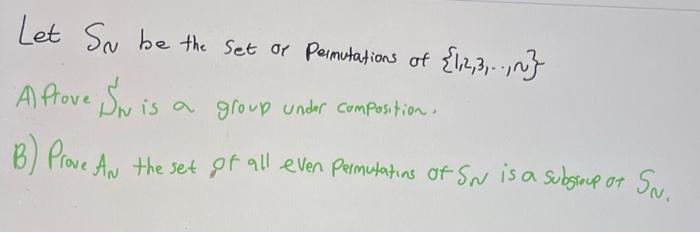 Let Sₙ be the set of Permutations of {1,2,3,..,n}
A) Prove Sₙ is a group under composition.
B) Prove Aₙ the set of all even Permutatins of Sₙ is a subgroup of Sₙ.